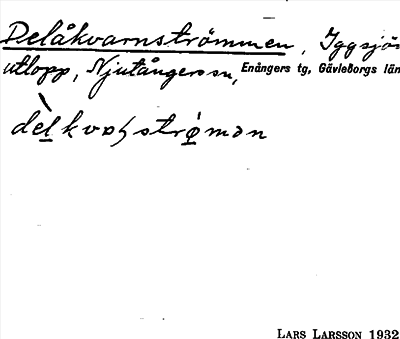 Delåkvarnströmmen, Iggsjö
utlopp, Njutångersn, Enångers tg, Gävleborgs län
LARS LARSSON 1932